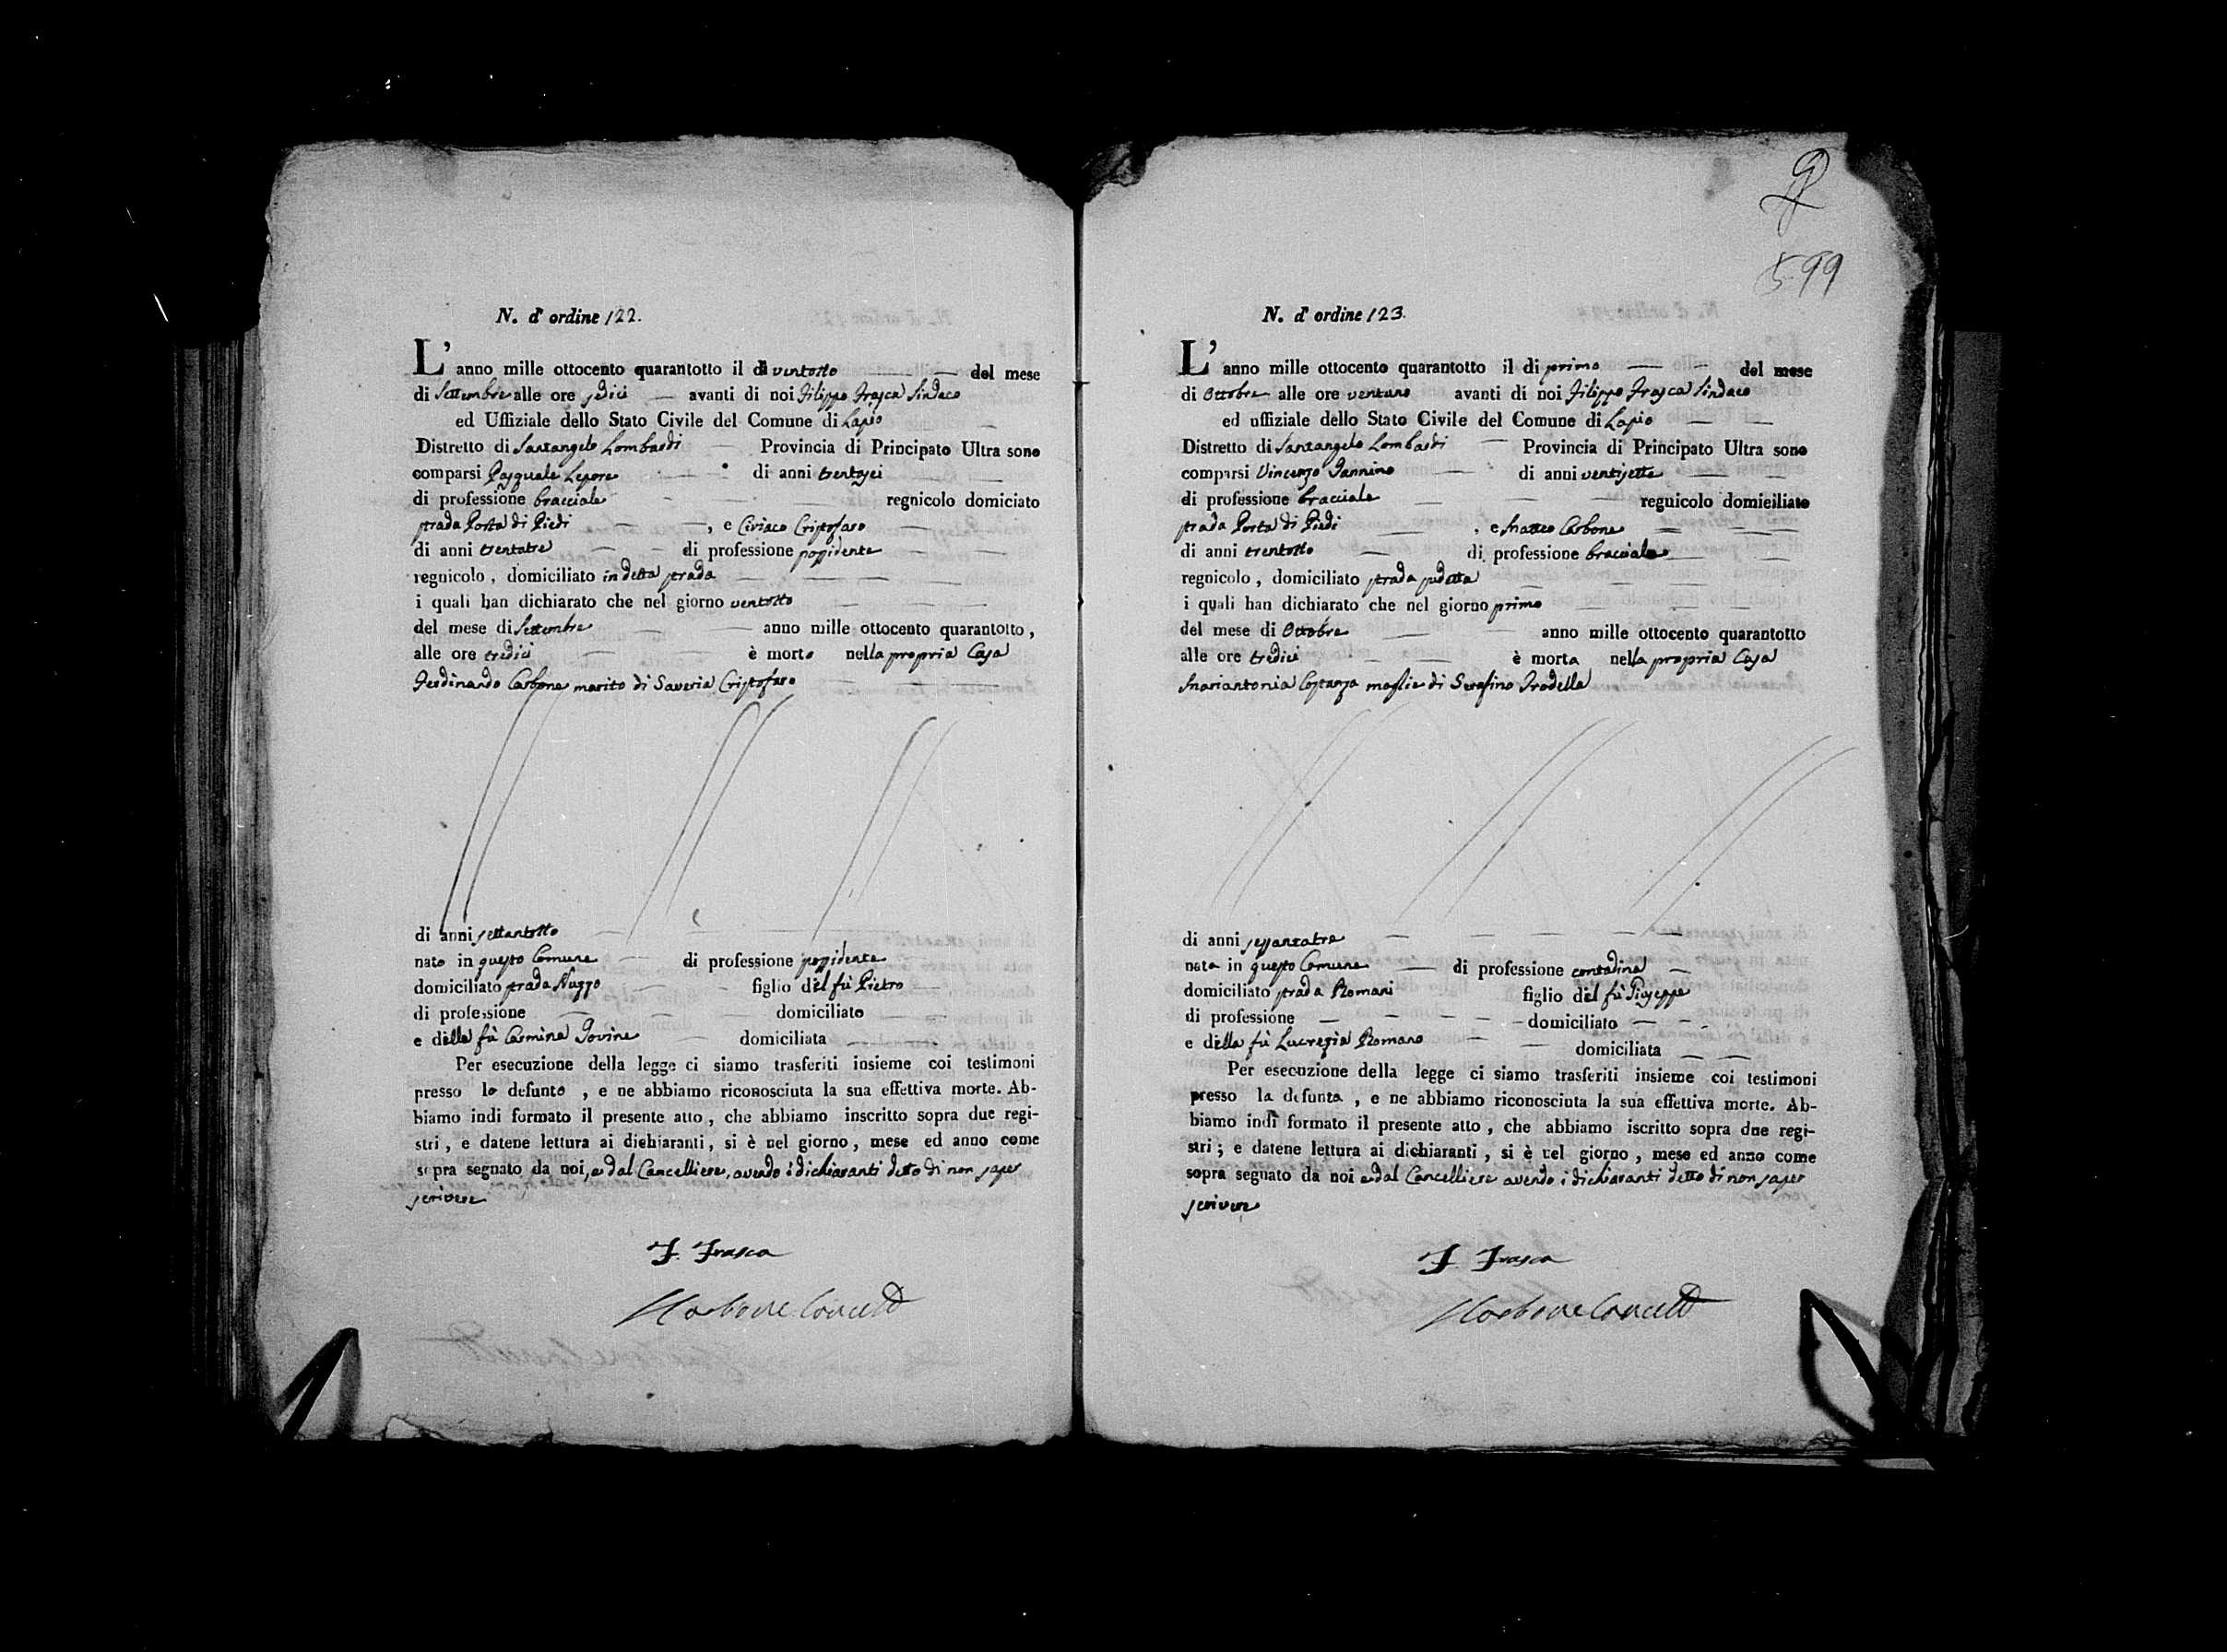 N. d' ordine 122.
L' anno mille ottocento quarantotto il dì ventotto del mese
di Settembre alle ore sedici avanti di noi Filippo Frasca Sindaco
ed Uffiziale dello Stato Civile del Comune di Lapio
Distretto di Santangelo Lombardi Provincia di Principato Ultra sono
comparsi Pasquale Lepore di anni trentasei
di professione bracciale regnicolo domiciato
strada Porta di Piedi , e Ciriaco Cristofaro
di anni trentatre di professione possidente
regnicolo , domiciliato in detta strada
i quali han dichiarato che nel giorno ventotto
del mese di Settembre anno mille ottocento quarantotto ,
alle ore tredici è morto nella propria Casa
Ferdinando Carbone marito di Saveria Cristofaro
di anni settantotto
nato in questo Comune di professione possidente
domiciliato strada Nuzzo figlio del fù Pietro
di professione domiciliato
e della fù Carmina Iovine domiciliata
Per esecuzione della legge ci siamo trasferiti insieme coi testimoni
presso lo defunto , e ne abbiamo riconosciuta la sua effettiva morte. Ab-
biamo indi formato il presente atto , che abbiamo inscritto sopra due regi-
stri , e datene lettura ai dichiaranti , si è nel giorno , mese ed anno come
sopra segnato da noi, e dal Cancelliere, avendo i dichiaranti detto di non saper
scrivere
F. Frasca
Carbone Cancell
599
N. d' ordine 123.
L' anno mille ottocento quarantotto il di primo del mese
di Ottobre alle ore ventuno avanti di noi Filippo Frasca Sindaco
ed uffiziale dello Stato Civile del Comune di Lapio
Distretto di Santangelo Lombardi Provincia di Principato Ultra sono
comparsi Vincenzo Iannino di anni ventisette
di professione bracciale regnicolo domiciliato
strada Porta di Piedi , e Matteo Carbone
di anni trentotto di professione bracciale
regnicolo , domiciliato strada sudetta
i quali han dichiarato che nel giorno primo
del mese di Ottobre anno mille ottocento quarantotto
alle ore tredici è morta nella propria Casa
Mariantonia Costanza moglie di Serafino Trodella
di anni sessantatre
nata in questo Comune di professione contadina
domiciliato strada Romani figlio del fù Giuseppe
di professione domiciliato
e della fù Lucrezia Romano domiciliata
Per esecuzione della legge ci siamo trasferiti insieme coi testimoni
presso la defunta , e ne abbiamo riconosciuta la sua effettiva morte. Ab-
biamo indi formato il presente atto , che abbiamo iscritto sopra due regi-
stri ; e datene lettura ai dichiaranti , si è nel giorno , mese ed anno come
sopra segnato da noi e dal Cancelliere avendo i dichiaranti detto di non saper
scrivere
F. Frasca
Carbone Cancell